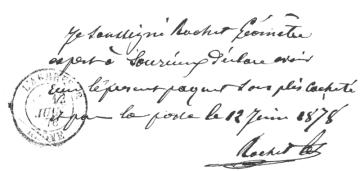 Je soussigné Rochet Géomètre
expert à Souzieux déclare avoir
réuni le présent paquet sous plis cacheté
et par la poste le 12 Juin 1878
Rochet
L'ARBRESLE
12
JUIN
78
RHONE